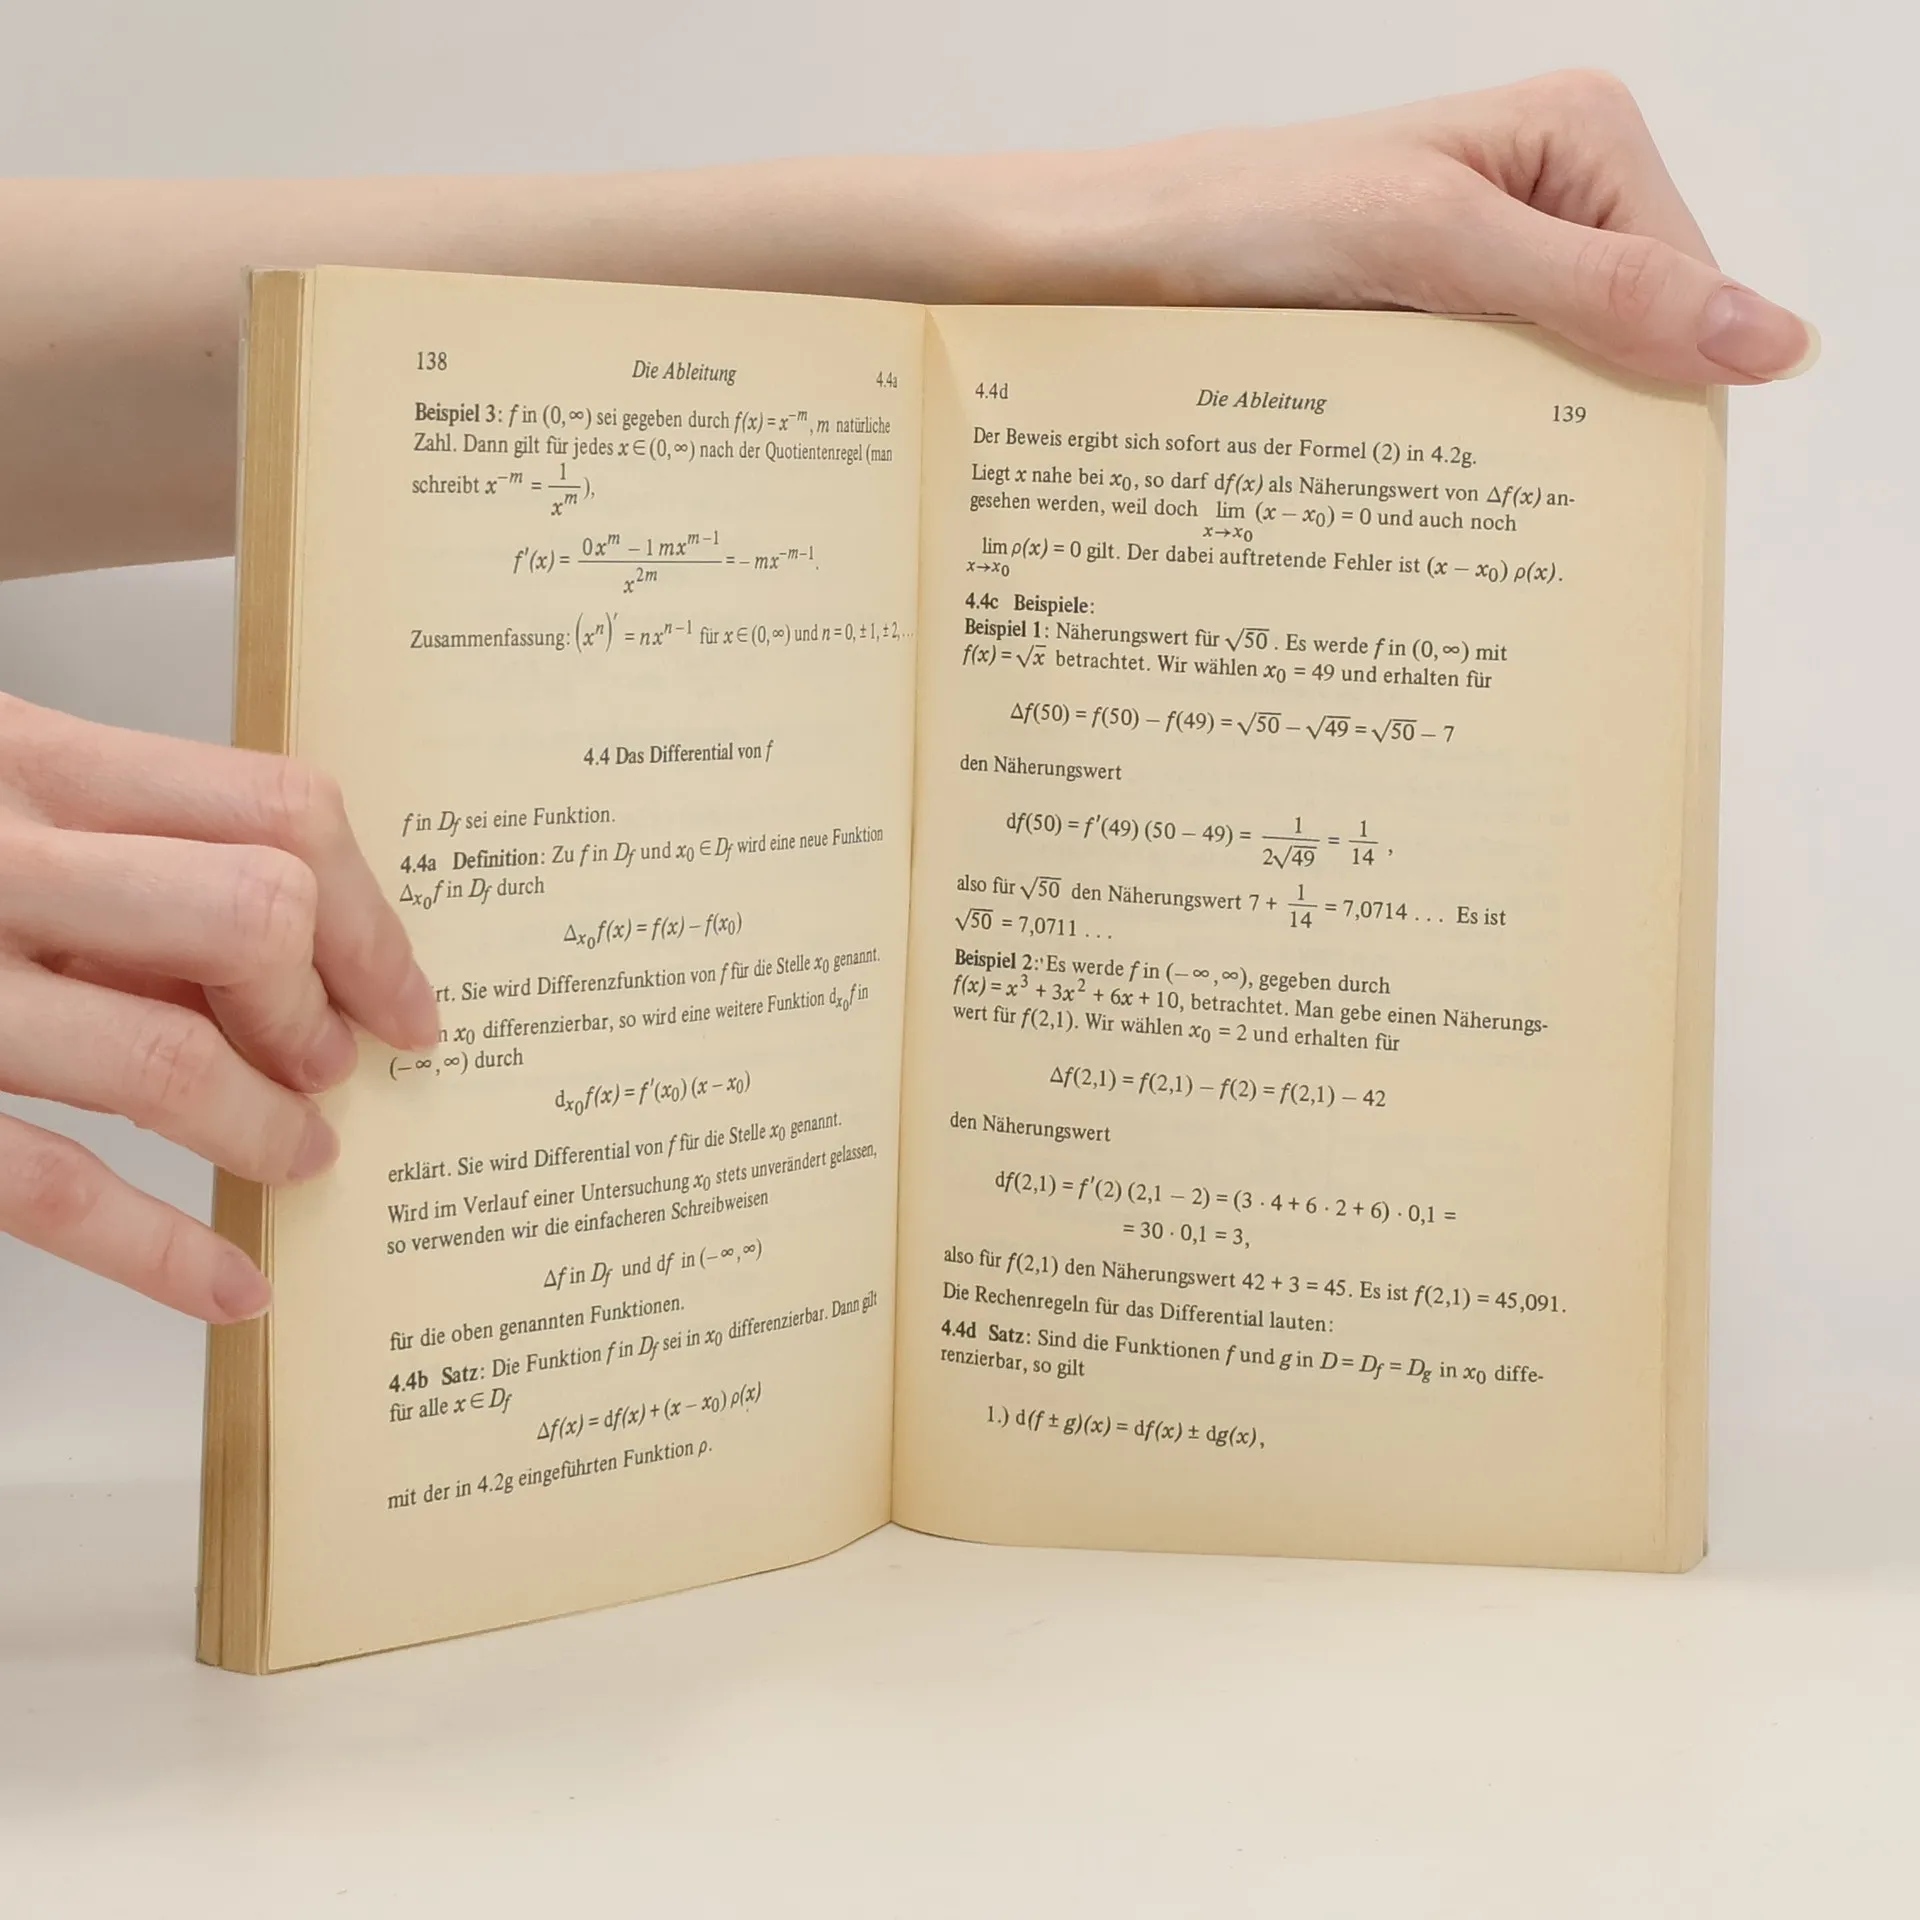 138 Die Ableitung 4.4a
Beispiel 3: f in (0, ∞) sei gegeben durch f(x) = x⁻ᵐ, m natürliche
Zahl. Dann gilt für jedes x ∈ (0, ∞) nach der Quotientenregel (man
schreibt x⁻ᵐ = 1/xᵐ),
f′(x) = (0xᵐ − 1 mxᵐ⁻¹)/x²ᵐ = − mx⁻ᵐ⁻¹.
Zusammenfassung: (xⁿ)′ = nxⁿ⁻¹ für x ∈ (0, ∞) und n = 0, ±1, ±2, ...
4.4 Das Differential von f
f in D_f sei eine Funktion.
4.4a Definition: Zu f in D_f und x₀ ∈ D_f wird eine neue Funktion
Δ_x₀ f in D_f durch
Δ_x₀ f(x) = f(x) − f(x₀)
rt. Sie wird Differenzfunktion von f für die Stelle x₀ genannt.
n x₀ differenzierbar, so wird eine weitere Funktion d_x₀ f in
(−∞, ∞) durch
d_x₀ f(x) = f′(x₀) (x − x₀)
erklärt. Sie wird Differential von f für die Stelle x₀ genannt.
Wird im Verlauf einer Untersuchung x₀ stets unverändert gelassen,
so verwenden wir die einfacheren Schreibweisen
Δf in D_f und df in (−∞, ∞)
für die oben genannten Funktionen.
4.4b Satz: Die Funktion f in D_f sei in x₀ differenzierbar. Dann gilt
für alle x ∈ D_f
Δf(x) = df(x) + (x − x₀) ρ(x)
mit der in 4.2g eingeführten Funktion ρ.
4.4d Die Ableitung 139
Der Beweis ergibt sich sofort aus der Formel (2) in 4.2g.
Liegt x nahe bei x₀, so darf df(x) als Näherungswert von Δf(x) an-
gesehen werden, weil doch lim x→x₀ (x − x₀) = 0 und auch noch
lim x→x₀ ρ(x) = 0 gilt. Der dabei auftretende Fehler ist (x − x₀) ρ(x).
4.4c Beispiele:
Beispiel 1: Näherungswert für √50. Es werde f in (0, ∞) mit
f(x) = √x betrachtet. Wir wählen x₀ = 49 und erhalten für
Δf(50) = f(50) − f(49) = √50 − √49 = √50 − 7
den Näherungswert
df(50) = f′(49) (50 − 49) = 1/(2√49) = 1/14 ,
also für √50 den Näherungswert 7 + 1/14 = 7,0714 ... Es ist
√50 = 7,0711 ...
Beispiel 2: Es werde f in (−∞, ∞), gegeben durch
f(x) = x³ + 3x² + 6x + 10, betrachtet. Man gebe einen Näherungs-
wert für f(2,1). Wir wählen x₀ = 2 und erhalten für
Δf(2,1) = f(2,1) − f(2) = f(2,1) − 42
den Näherungswert
df(2,1) = f′(2) (2,1 − 2) = (3 · 4 + 6 · 2 + 6) · 0,1 =
= 30 · 0,1 = 3,
also für f(2,1) den Näherungswert 42 + 3 = 45. Es ist f(2,1) = 45,091.
Die Rechenregeln für das Differential lauten:
4.4d Satz: Sind die Funktionen f und g in D = D_f = D_g in x₀ diffe-
renzierbar, so gilt
1.) d(f ± g)(x) = df(x) ± dg(x),